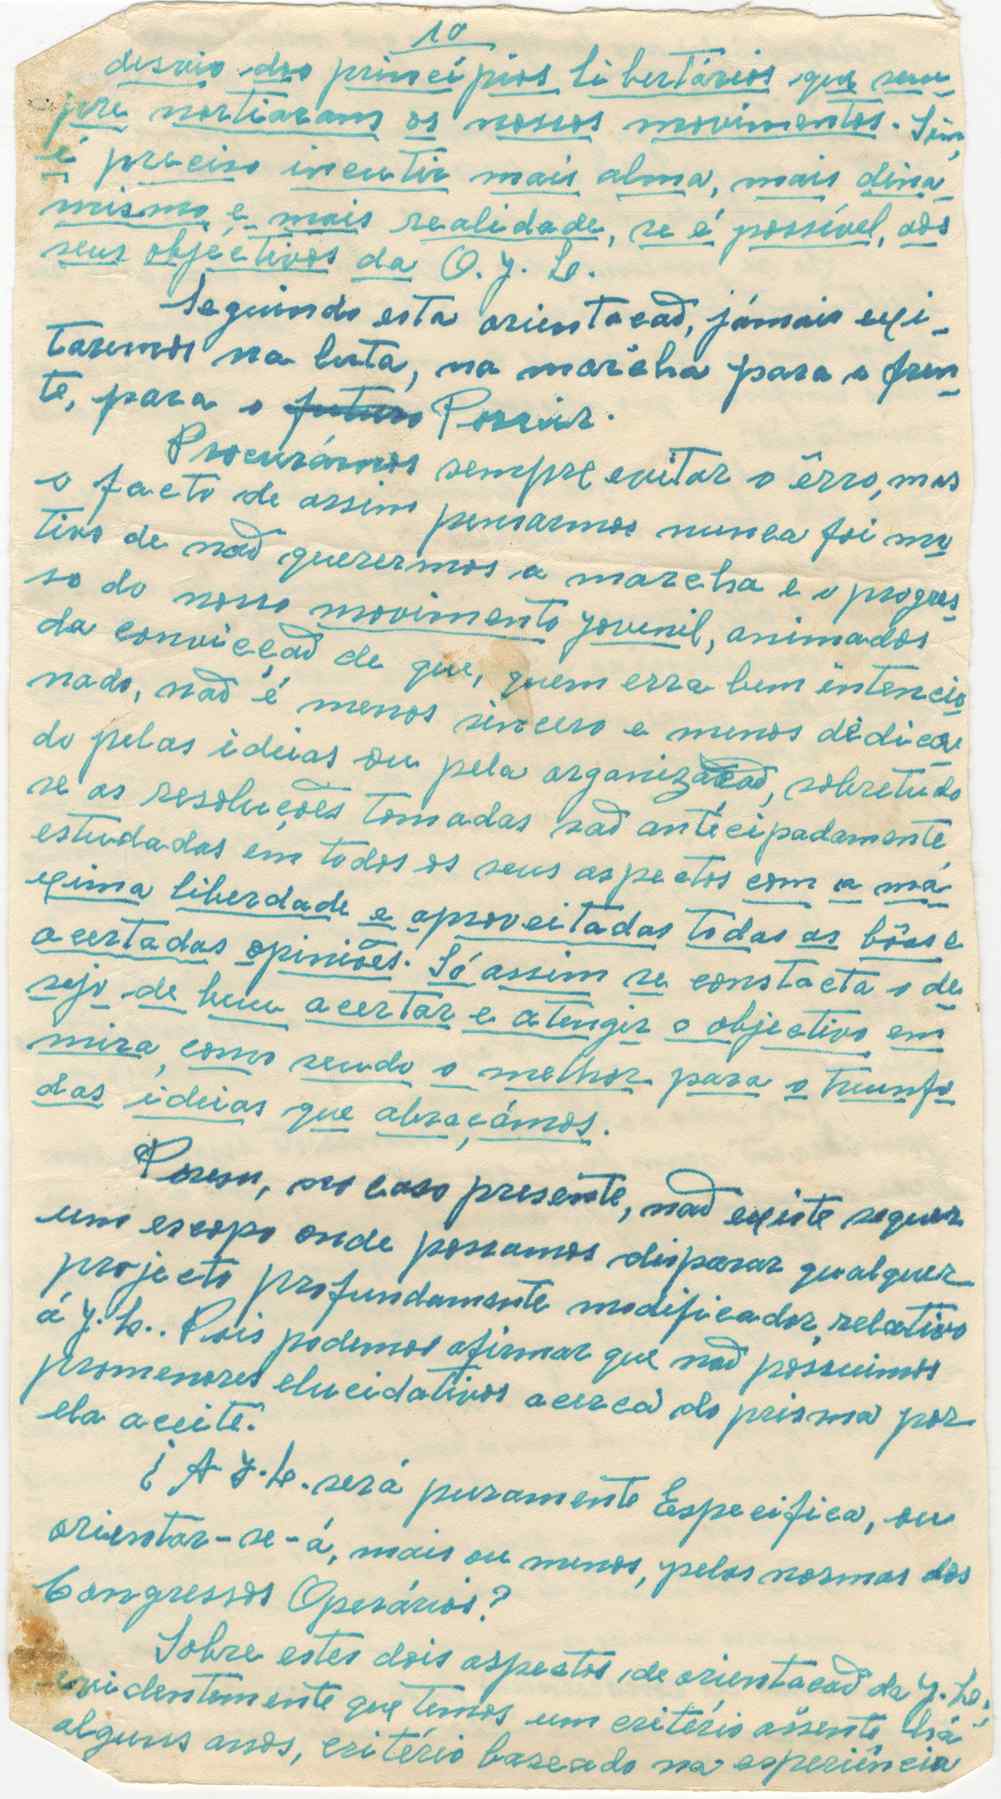 10
desvio dos princípios libertários que sem-
pre nortiaram os nossos movimentos. Sim,
é preciso incutir mais alma, mais dina-
mismo e mais realidade, se é possível, aos
seus objéctivos da O. J. L.
Seguindo esta orientacaõ, jámais exi-
taremos na luta, na marcha para a fren-
te, para o futuro Porvir.
Procurámos sempre evitar o êrro, mas
o facto de assim pensarmos nunca foi mo
tivo de naõ querermos a marcha e o progres
so do nosso movimento jovenil, animados
da convicçaõ de que, quem erra bem intencio
nado, naõ é menos sincero e menos dedica
do pelas ideias ou pela organizacaõ, sobretudo
se as resoluções tomadas saõ antecipadamente
estudadas em todos os seus aspectos com a má
xima liberdade e aproveitadas todas as bôas e
acertadas opiniões. Só assim se constacta o de
sejo de bem acertar e atengir o objectivo em
mira, como sendo o melhor para o triunfo
das ideias que abraçámos.
Porem, no caso presente, naõ existe sequer
um escopo onde possamos disparar qualquer
projecto profundamente modificador, relativo
á J. L.. Pois podemos afirmar que naõ possuimos
promenores elucidativos acerca do prisma por
ela aceite.
¿ A J. L. será puramente Especifica, ou
orientar-se-á, mais ou menos, pelas normas dos
Congressos Operários?
Sobre estes dois aspectos de orientacaõ da J. L.,
evidentemente que temos um critério assente há
alguns anos, critério baseado na esperiência